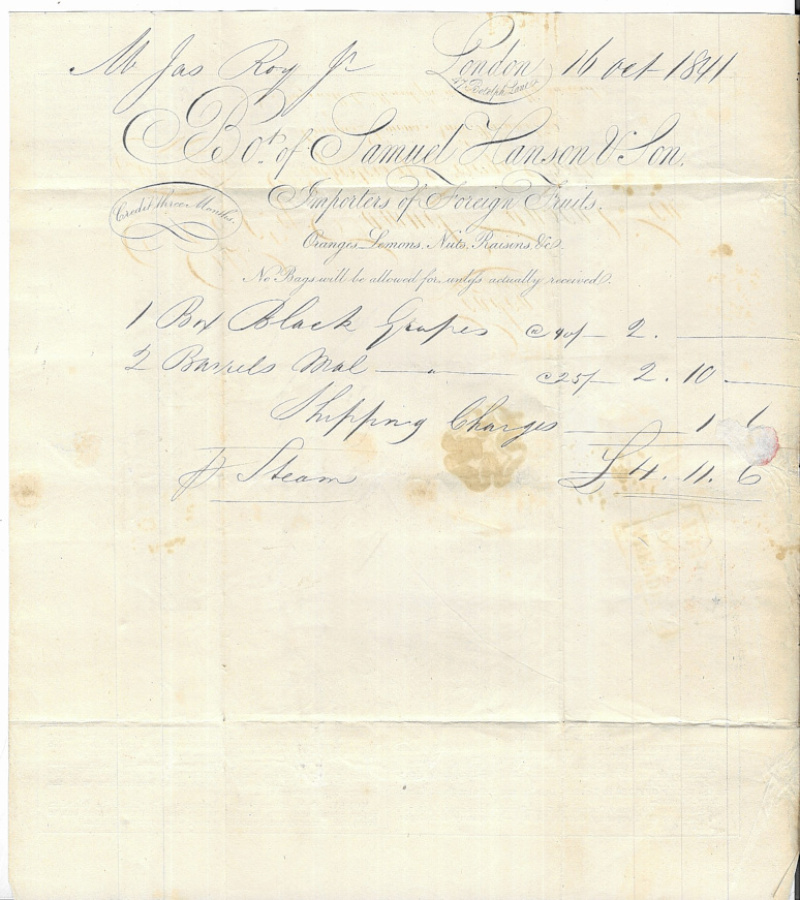 Mr Jas Roy Jr London 16 Oct 1841
47 Botolph Lane
Bot. of Samuel Hanson & Son.
Credit three Months.
Importers of Foreign Fruits.
Oranges, Lemons, Nuts, Raisins, &c.
No Bags will be allowed for, unless actually received.
1 Box Black Grapes @ 40/- 2. —
2 Barrels Mal — " — @ 25/- 2. 10 —
Shipping Charges — 1 6
p Steam £4. 11. 6